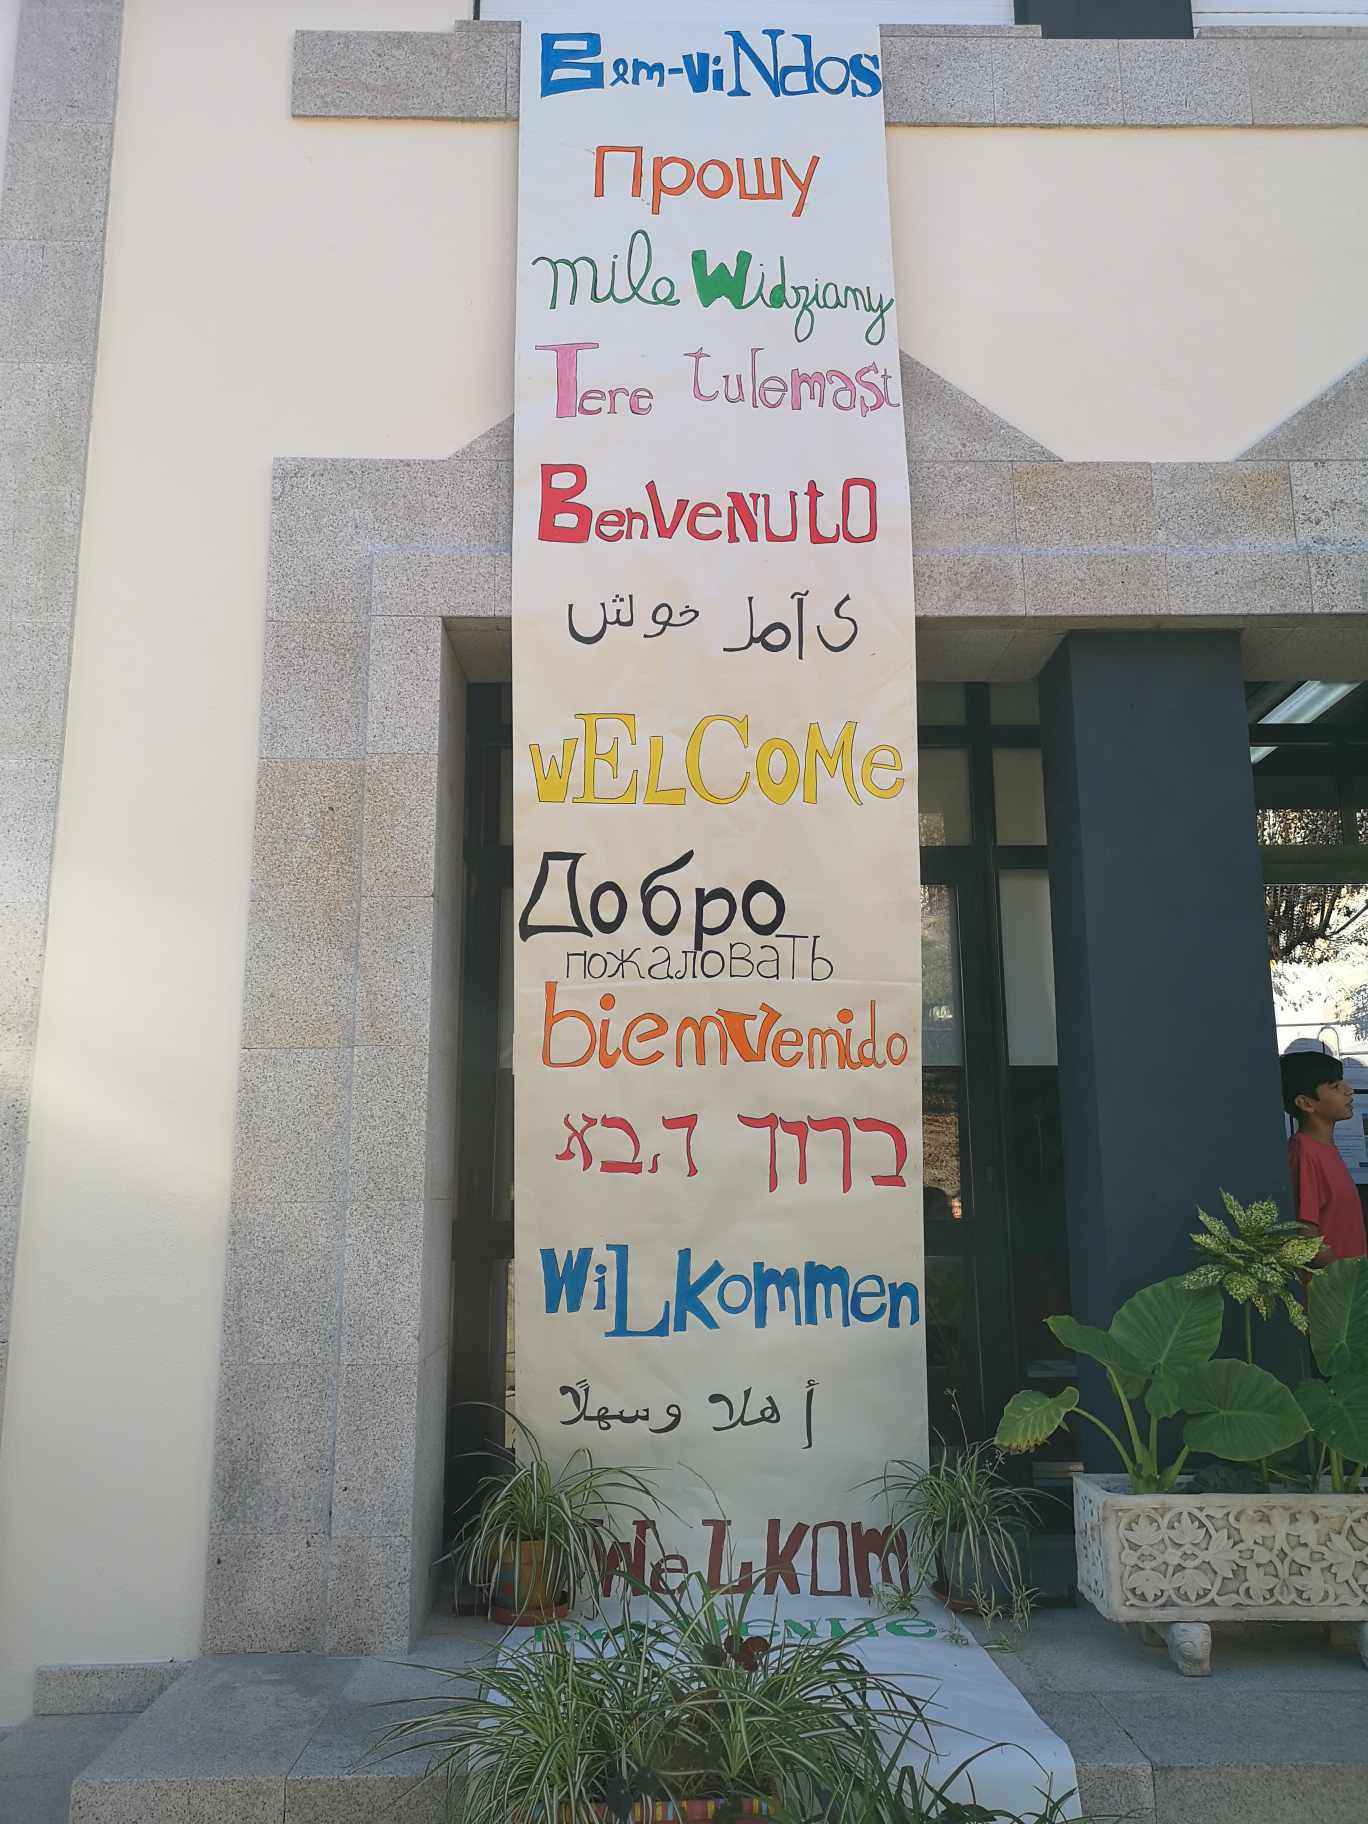 Bem-viNdos
Прошу
mile Widziany
Tere tulemast
BenVeNUtO
ی آمد خوش
wELCOMe
Добро
пожаловать
biemVemido
ברוך הבא
WiLkommen
أهلا وسهلًا
WeLKOm